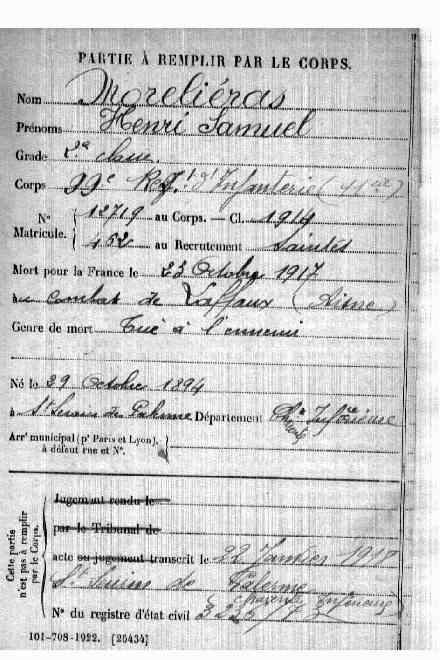 PARTIE À REMPLIR PAR LE CORPS.
Nom Moreliéras
Prénoms Henri Samuel
Grade 2e classe
Corps 99e Rgt d'Infanterie (11e Cie)
N° 12719 au Corps. — Cl. 1914
Matricule. 452 au Recrutement Saintes
Mort pour la France le 23 Octobre 1917
au combat de Laffaux (Aisne)
Genre de mort Tué à l'ennemi
Né le 29 Octobre 1894
à St Seurin de Palenne Département Chte Inférieure
Arrt municipal (pr Paris et Lyon),
à défaut rue et N°.
Cette partie
n'est pas à remplir
par le Corps.
Jugement rendu le
par le Tribunal de
acte ou jugement transcrit le 22 Janvier 1918
St Seurin de Palenne
Charente Inférieure
N° du registre d'état civil
101-708-1922. [26434]